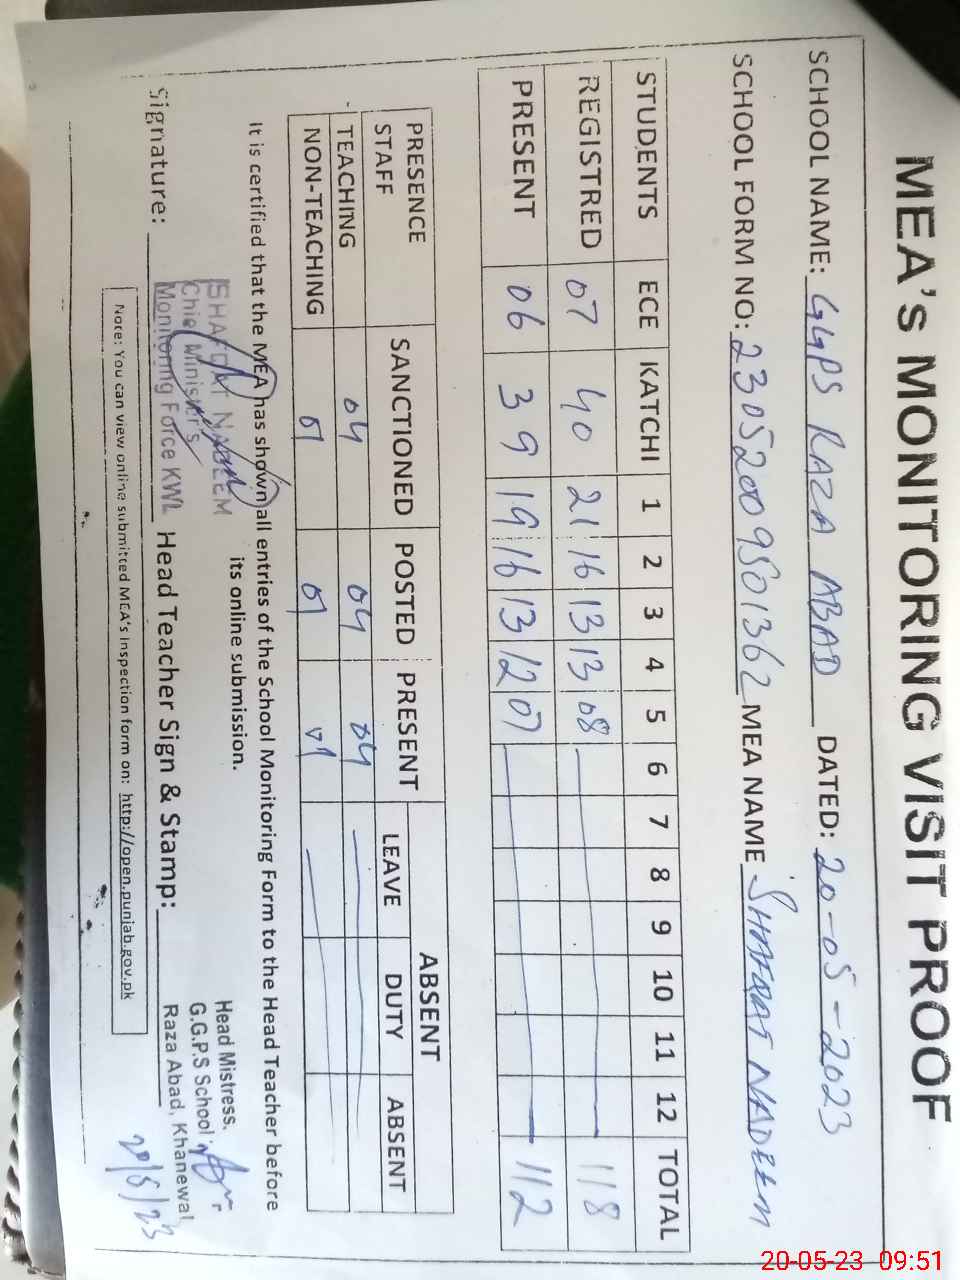 MEA'S MONITORING VISIT PROOF
SCHOOL NAME: GGPS RAZA ABAD DATED: 20-05-2023
SCHOOL FORM NO: 23052009501362 MEA NAME SHAFQAT NADEEM
STUDENTS ECE KATCHI 1 2 3 4 5 6 7 8 9 10 11 12 TOTAL
REGISTRED 07 40 21 16 13 13 08 118
PRESENT 06 39 19 16 13 12 07 112
PRESENCE STAFF SANCTIONED POSTED PRESENT ABSENT
LEAVE DUTY ABSENT
TEACHING 04 04 04
NON-TEACHING 01 01 01
It is certified that the MEA has shown all entries of the School Monitoring Form to the Head Teacher before
its online submission.
SHAFQAT NADEEM
Chief Minister's
Monitoring Force KWL
Signature: Head Teacher Sign & Stamp:
Head Mistress.
G.G.P.S School
Raza Abad, Khanewal
20/5/23
Note: You can view online submitted MEA's Inspection form on: http://open.punjab.gov.pk
20-05-23 09:51